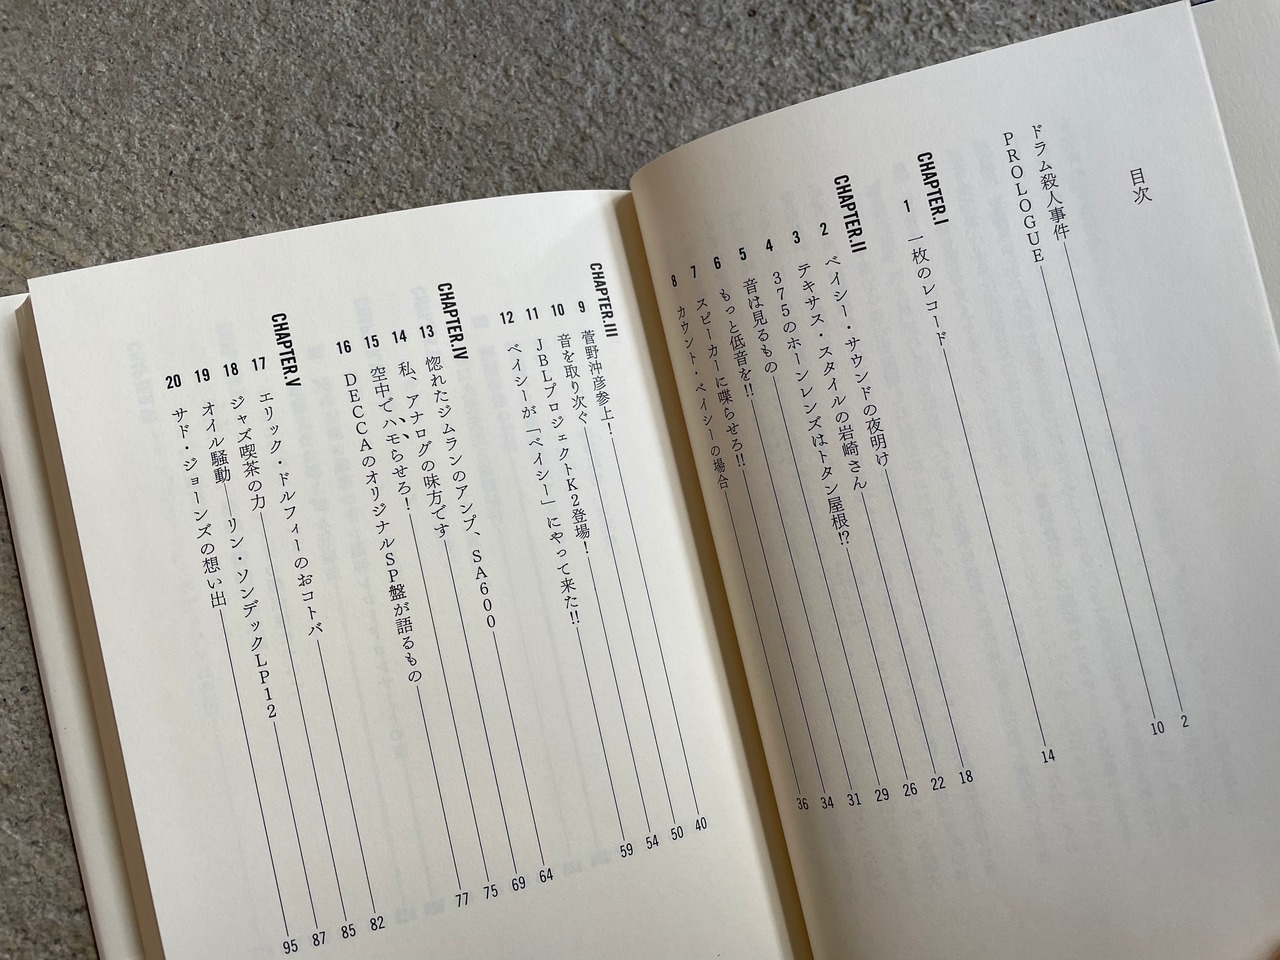 目次
ドラム殺人事件 2
PROLOGUE 10
CHAPTER.I
1 一枚のレコード 14
CHAPTER.II
2 ベイシー・サウンドの夜明け 18
3 テキサス・スタイルの岩崎さん 22
4 375のホーンレンズはトタン屋根!? 26
5 音は見るもの 29
6 もっと低音を!! 31
7 スピーカーに喋らせろ!! 34
8 カウント・ベイシーの場合 36
CHAPTER.III
9 菅野沖彦参上! 40
10 音を取り次ぐ 50
11 JBLプロジェクトK2登場! 54
12 ベイシーが「ベイシー」にやって来た!! 59
CHAPTER.IV
13 惚れたジムランのアンプ、SA600 64
14 私、アナログの味方です 69
15 空中でハモらせろ! 75
16 DECCAのオリジナルSP盤が語るもの 77
CHAPTER.V
17 エリック・ドルフィーのおコトバ 82
18 ジャズ喫茶の力 85
19 オイル騒動──リン・ソンデックLP12 87
20 サド・ジョーンズの想い出 95